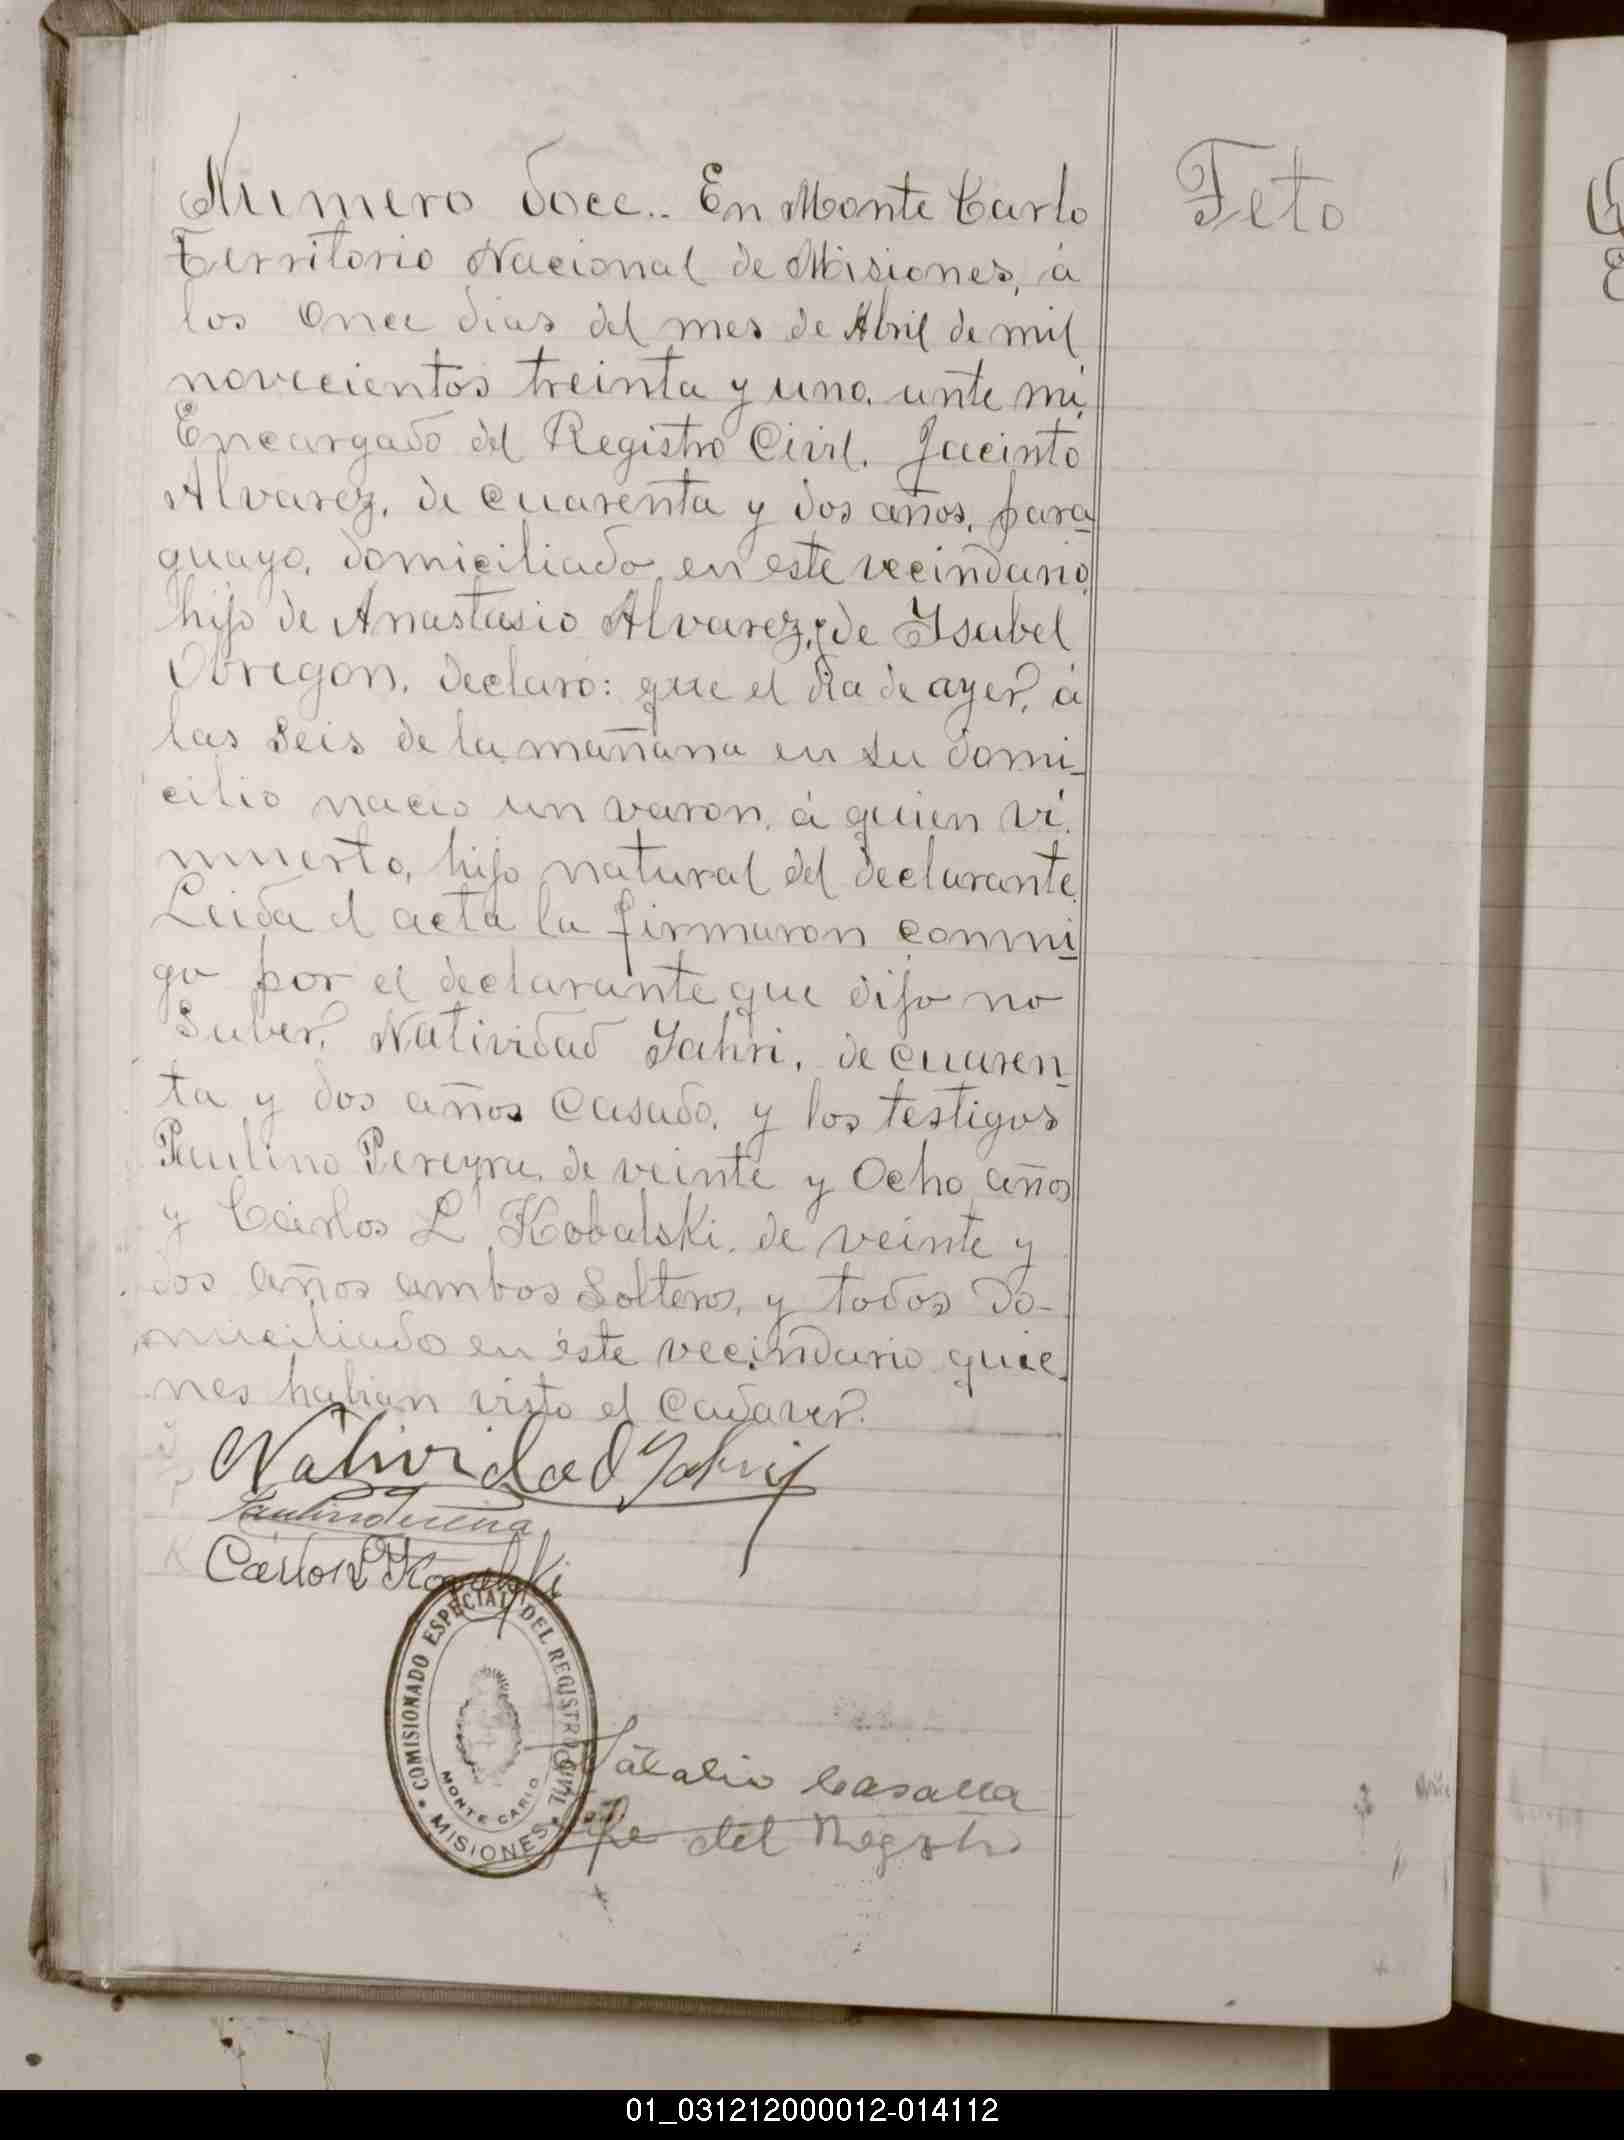 Numero doce.. En Monte Carlo
Feto
Territorio Nacional de Misiones, á
los Once dias del mes de Abril de mil
novecientos treinta y uno. ante mi,
Encargado del Registro Civil. Jacinto
Alvarez, de cuarenta y dos años, para
guayo, domiciliado en este vecindario,
hijo de Anastasio Alvarez, y de Ysabel
Obregon, declaró: que el dia de ayer, á
las seis de la mañana en su domi-
cilio nacio un varon, á quien vi
muerto, hijo natural del declarante.
Leida el acta la firmaron conmi
go por el declarante que dijo no
Saber, Natividad Yahri, de cuaren
ta y dos años Casado, y los testigos
Paulino Pereyra, de veinte y Ocho años
y Carlos L Kobalski, de veinte y
dos años ambos Solteros, y todos Do-
miciliados en este vecindario quie
nes habian visto el Cadaver.
Natividad Yahri
Carlos L Kowalski
COMISIONADO ESPECIAL DEL REGISTRO CIVIL
MONTE CARLO
MISIONES
Natalio Casalla
Jefe del Registro
01_031212000012-014112